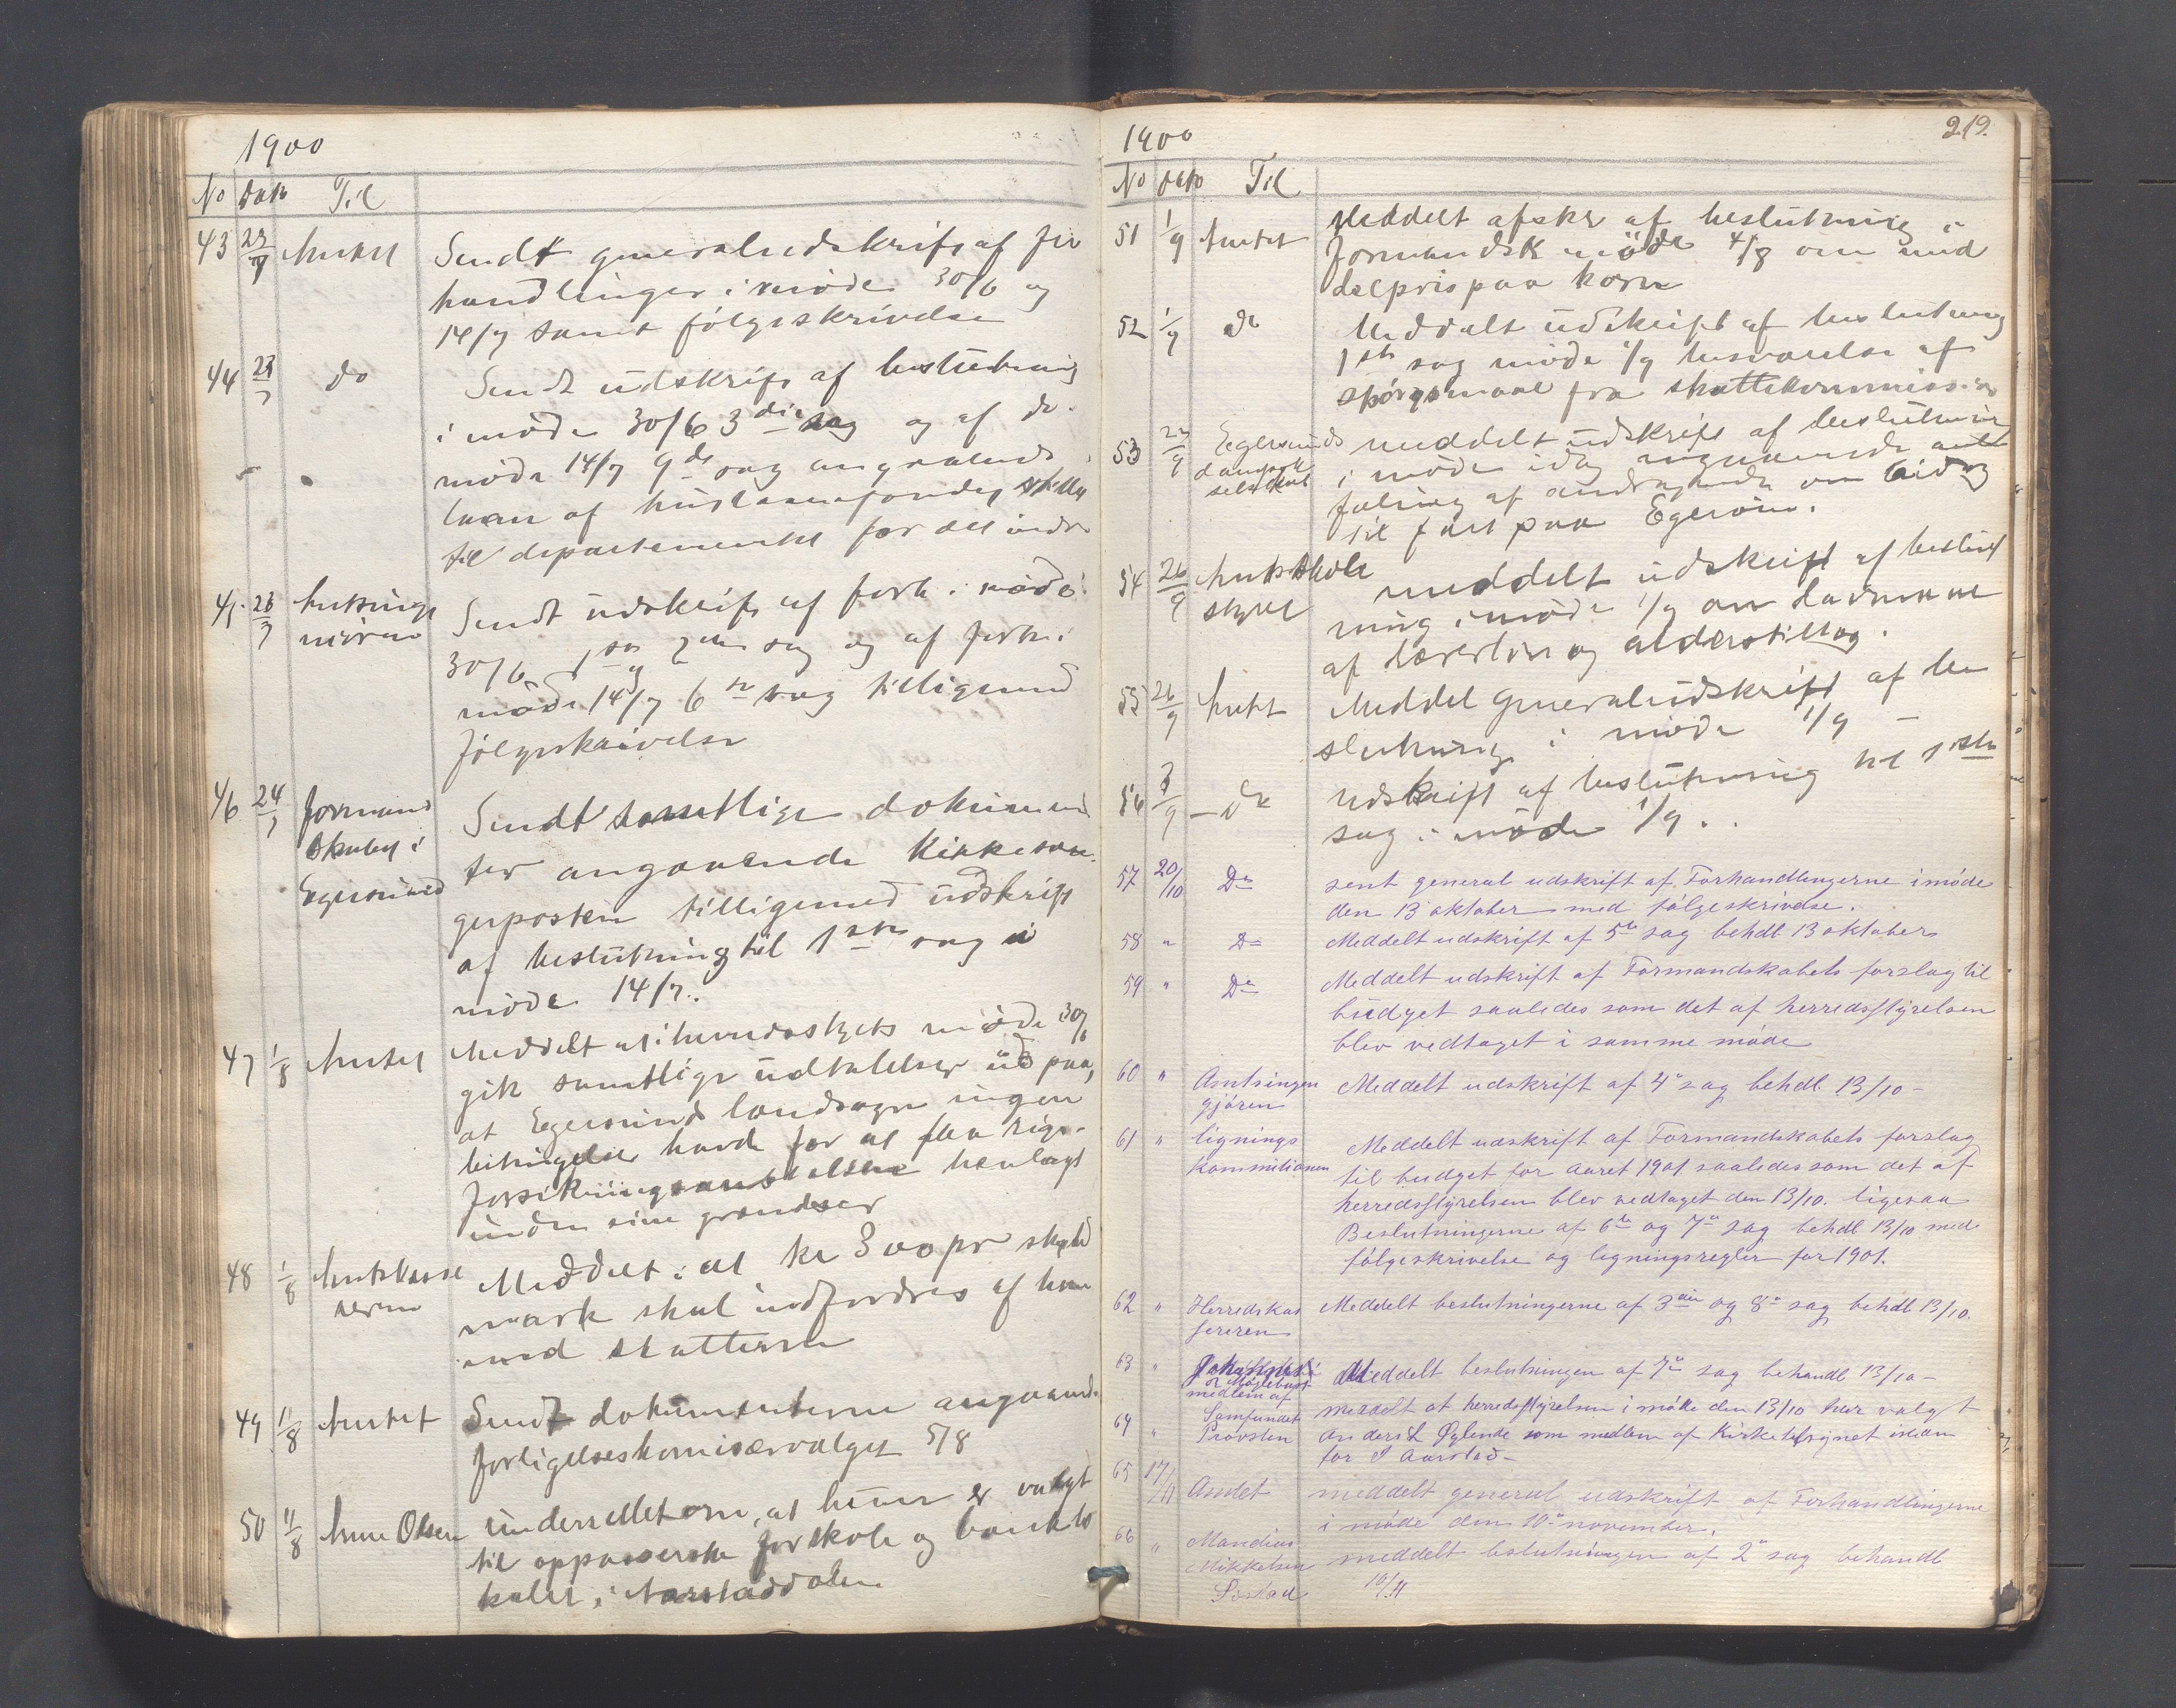 1900
No Dato Til
43 23/7 Amtet Sendt generaludskrift af for
handlinger i møde 30/6 og
14/7 samt følgeskrivelse
44 23/7 do Sendt udskrift af beslutning
i møde 30/6 3die sag og af do
møde 14/7 9de sag angaaende
laan af huslaanefondet
til departementet for det indre
45 23/7 Amtsinge
niøren Sendt udskrift af forh. i møde
30/6 1ste og 2den sag og af forh i
møde 14/7 6te sag tilligemed
følgeskrivelse
46 24/7 formand
skabet i
Egersund Sendt samtlige dokumen
ter angaaende Kirkesan
gerposten tilligemed udskrift
af beslutning til 1ste sag i
møde 14/7.
47 1/8 Amtet Meddelt at i herredsstyrets møde 30/6
gik samtlige udtalelser ud paa,
at Egersund landsogn ingen
betingelse havde for at faa rigs-
forsikringsanstalten henlagt
inden sine grændser
48 1/8 Amtskasse
reren Meddelt: at kr 3 00 pr skyld
mark skal indfordres af ham
med skatterne
49 11/8 Amtet Sendt dokumenterne angaaende
forligelseskomisærvalget 5/8
50 11/8 Anne Olsen underrettet om, at hun er valgt
til oppasserske for skole og banklo
kalet i Aarstaddalen
1900 219.
No Dato Til
51 1/9 Amtet Meddelt afskr af beslutning i
Formandsk møde 4/8 om mid
delpris paa korn
52 1/9 do Meddelt udskrift af beslutning
1ste sag møde 1/9 besvarelse af
spørgsmaal fra skattekommissio
53 22/9 Egersunds
dampsk
selskab meddelt udskrift af beslutning
i møde idag angaaende anbe
faling af andragende om bidrag
til fart paa Egerøen.
54 26/9 Amtsskole
styret meddelt udskrift af beslut
ning i møde 1/9 om
af lærerløn og alderstillæg.
55 26/9 Amtet Meddelt generaludskrift af be
slutning i møde 1/9 —
56 /9 — do udskrift af beslutning til 1ste
sag i møde 1/9.
57 20/10 Do sent general udskrift af Forhandlingerne i møde
den 13 oktober med følgeskrivelse.
58 " Do Meddelt udskrift af 5te sag behdl 13 oktober
59 " Do Meddelt udskrift af Formandskabets forslag til
budget saaledes som det af herredsstyrelsen
blev vedtaget i samme møde
60 " Amtsingen
gjøren Meddelt udskrift af 4e sag behdl 13/10 —
61 " lignings
kommitionen Meddelt udskrift af Formandskabets forslag
til budget for aaret 1901 saaledes som det af
herredsstyrelsen blev vedtaget den 13/10. ligesaa
Beslutningerne af 6te og 7e sag behdl 13/10 med
følgeskrivelse og ligningsregler for 1901.
62 " Herredskas
sereren Meddelt beslutningerne af 3die og 8e sag behdl 13/10.
63 " medlem af
Samfundet Meddelt beslutningen af 7e sag behandl 13/10 —
64 " Provsten meddelt at herredsstyrelsen i møde den 13/10 har valgt
Anders L Øglende som medlem af Kirketilsynet istedan
for Aarstad —
65 17/11 Amtet meddelt general udskrift af Forhandlingerne
i møde den 10e november.
66 " Mandius
Mikkelsen meddelt beslutningen af 2e sag behandl
10/11